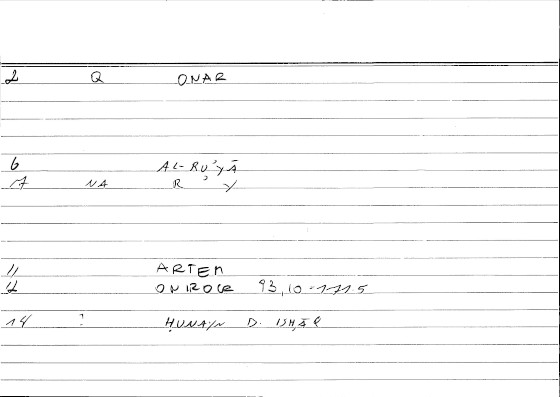 2 Q ONAR
6 AL-RU'YĀ
7 NA R ' Y
11 ARTEM
12 ONIROCR 93,10-11.5
14 ? ḤUNAYN B. ISḤĀQ